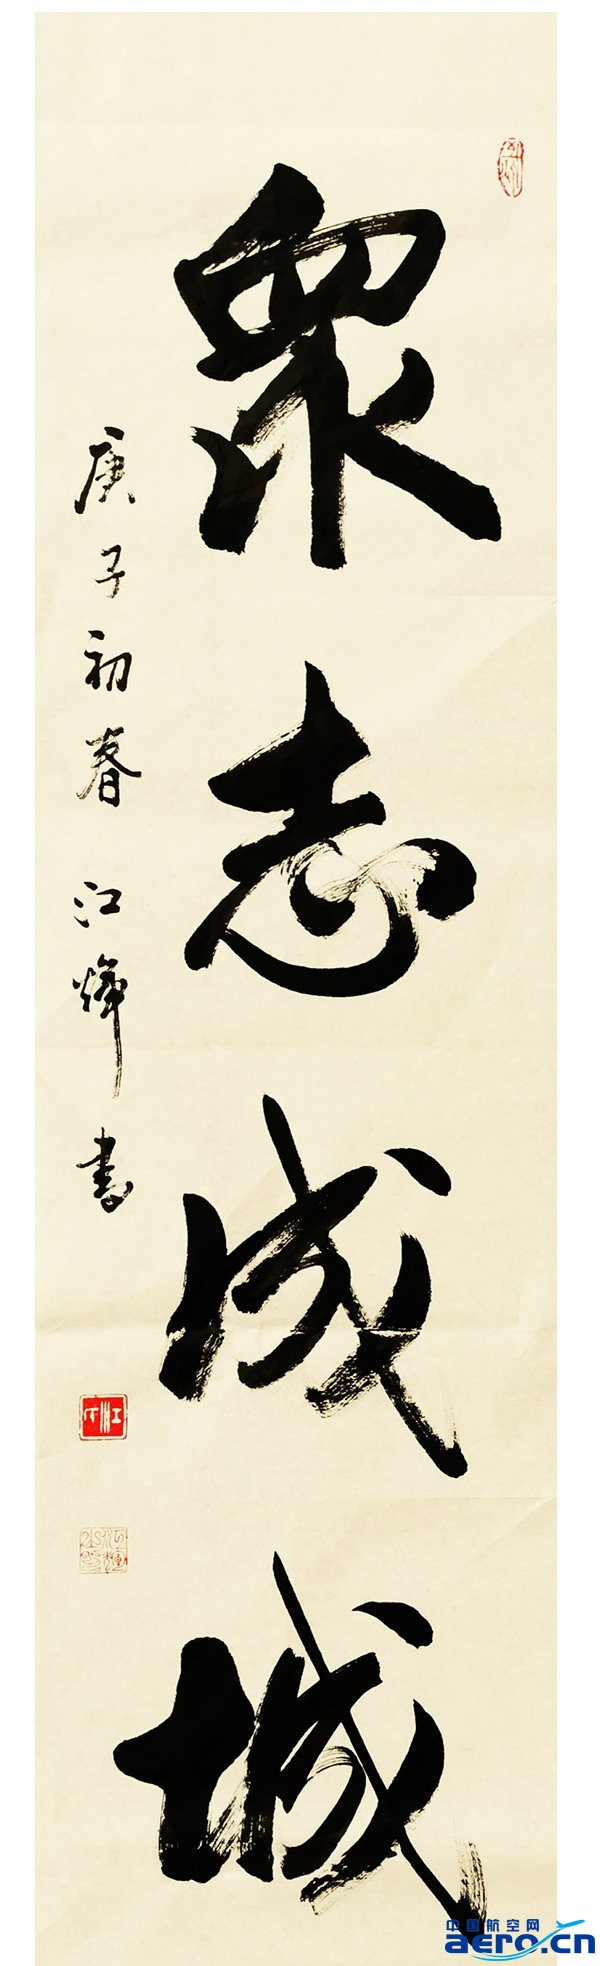 衆志成城
庚子初春 江煇書
中国航空网
aero.cn